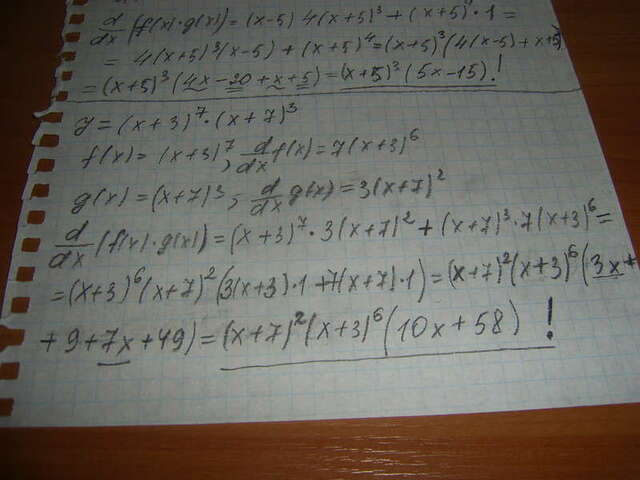 d/dx (f(x)·g(x)) = (x-5) 4(x+5)³ + (x+5)⁴·1 =
= 4(x+5)³(x-5) + (x+5)⁴ = (x+5)³(4(x-5)+x+5)
= (x+5)³(4x-20+x+5) = (x+5)³(5x-15)!
y = (x+3)⁷·(x+7)³
f(x) = (x+3)⁷, d/dx f(x) = 7(x+3)⁶
g(x) = (x+7)³, d/dx g(x) = 3(x+7)²
d/dx (f(x)·g(x)) = (x+3)⁷·3(x+7)² + (x+7)³·7(x+3)⁶ =
= (x+3)⁶(x+7)²(3(x+3)·1+7(x+7)·1) = (x+7)²(x+3)⁶(3x+
+9+7x+49) = (x+7)²(x+3)⁶(10x+58) !